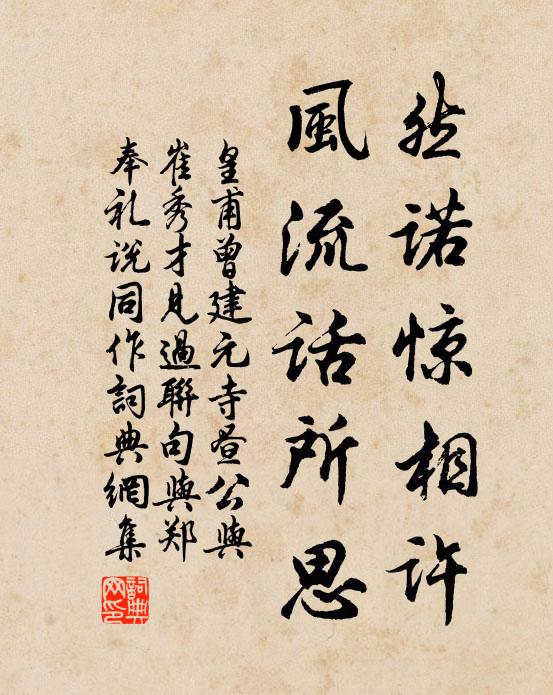 然诺惊相许
風流話所思
皇甫曾建元寺昼公與
崔秀才見過聯句與郑
奉礼说同作詞典網集
詞典
网印